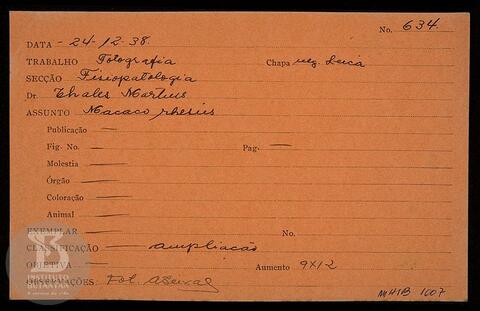 No. 634.
DATA - 24-12-38.
TRABALHO Fotografia Chapa neg. Leica
SECÇÃO Fisiopatologia
Dr. Thales Martins
ASSUNTO Macaco rhesus
Publicação —
Fig. No. — Pag. —
Molestia —
Órgão —
Coloração —
Animal —
EXEMPLAR — No.
CLASSIFICAÇÃO — ampliacão
OBJETIVA — Aumento 9X12
OBSERVAÇÕES: Fot.
INSTITUTO BUTANTAN
A serviço da vida
MHIB 1007